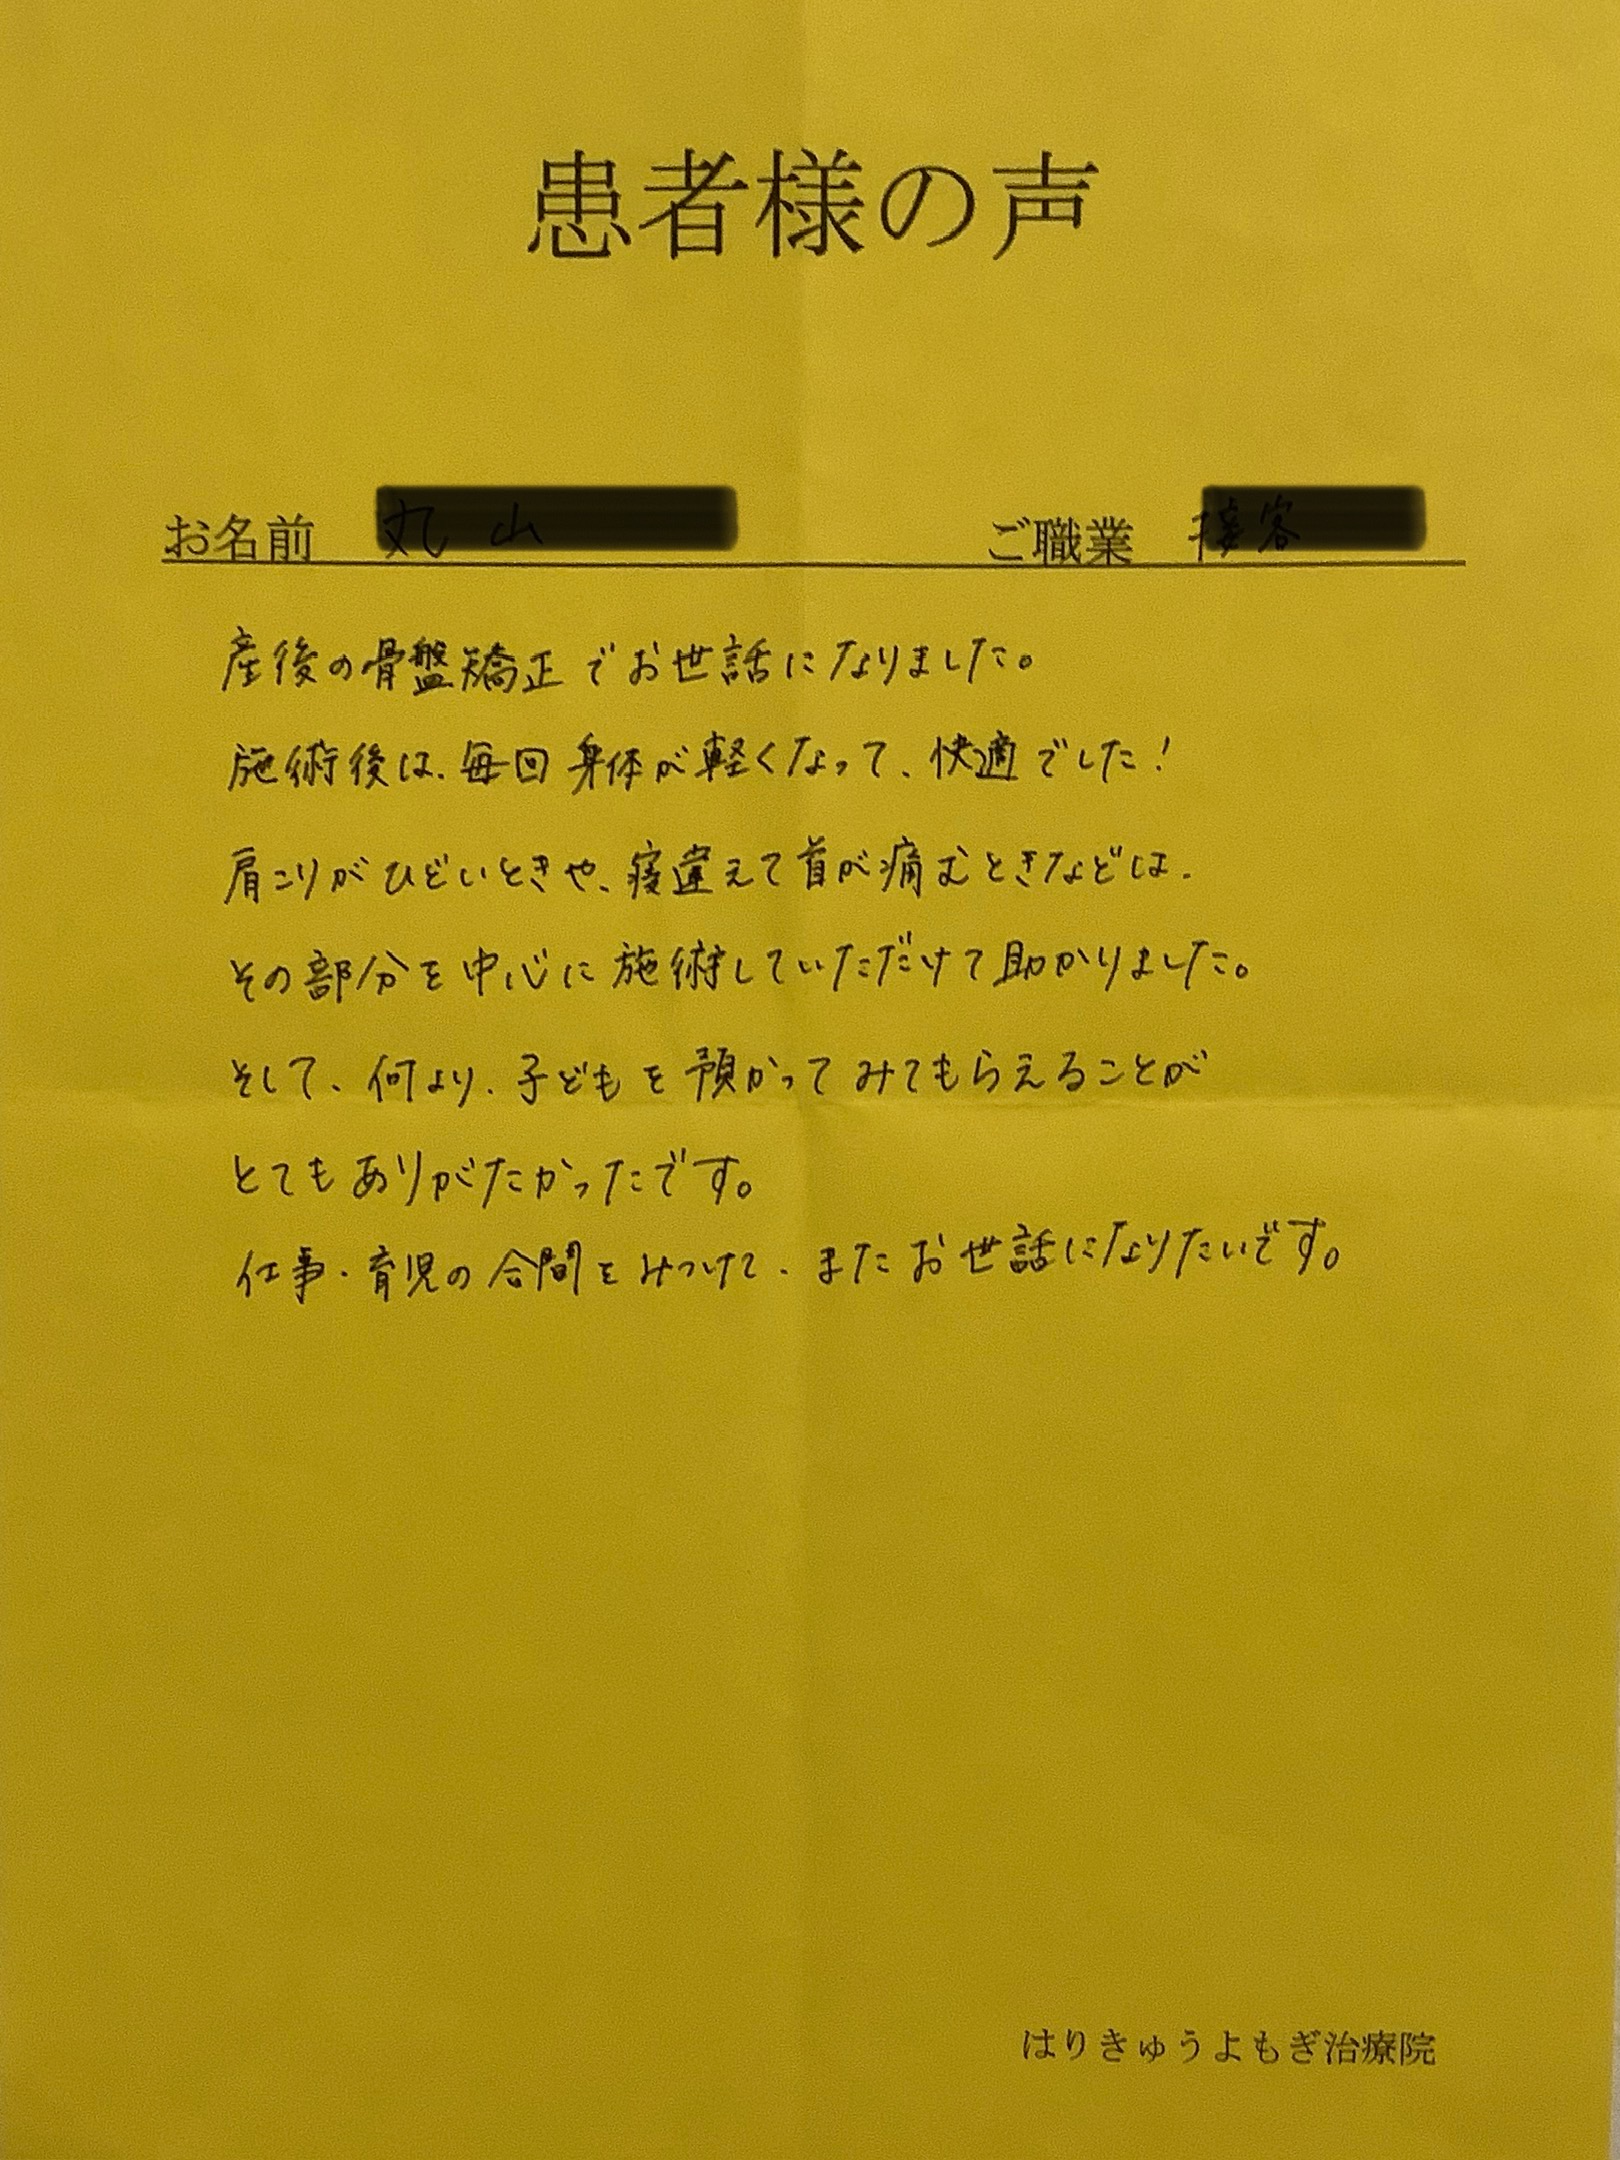 患者様の声
お名前 ご職業
産後の骨盤矯正でお世話になりました。
施術後は、毎回身体が軽くなって、快適でした！
肩こりがひどいときや、寝違えて首が痛むときなどは、
その部分を中心に施術していただけて助かりました。
そして、何より、子どもを預かってみてもらえることが
とてもありがたかったです。
仕事・育児の合間をみつけて、またお世話になりたいです。
はりきゅうよもぎ治療院